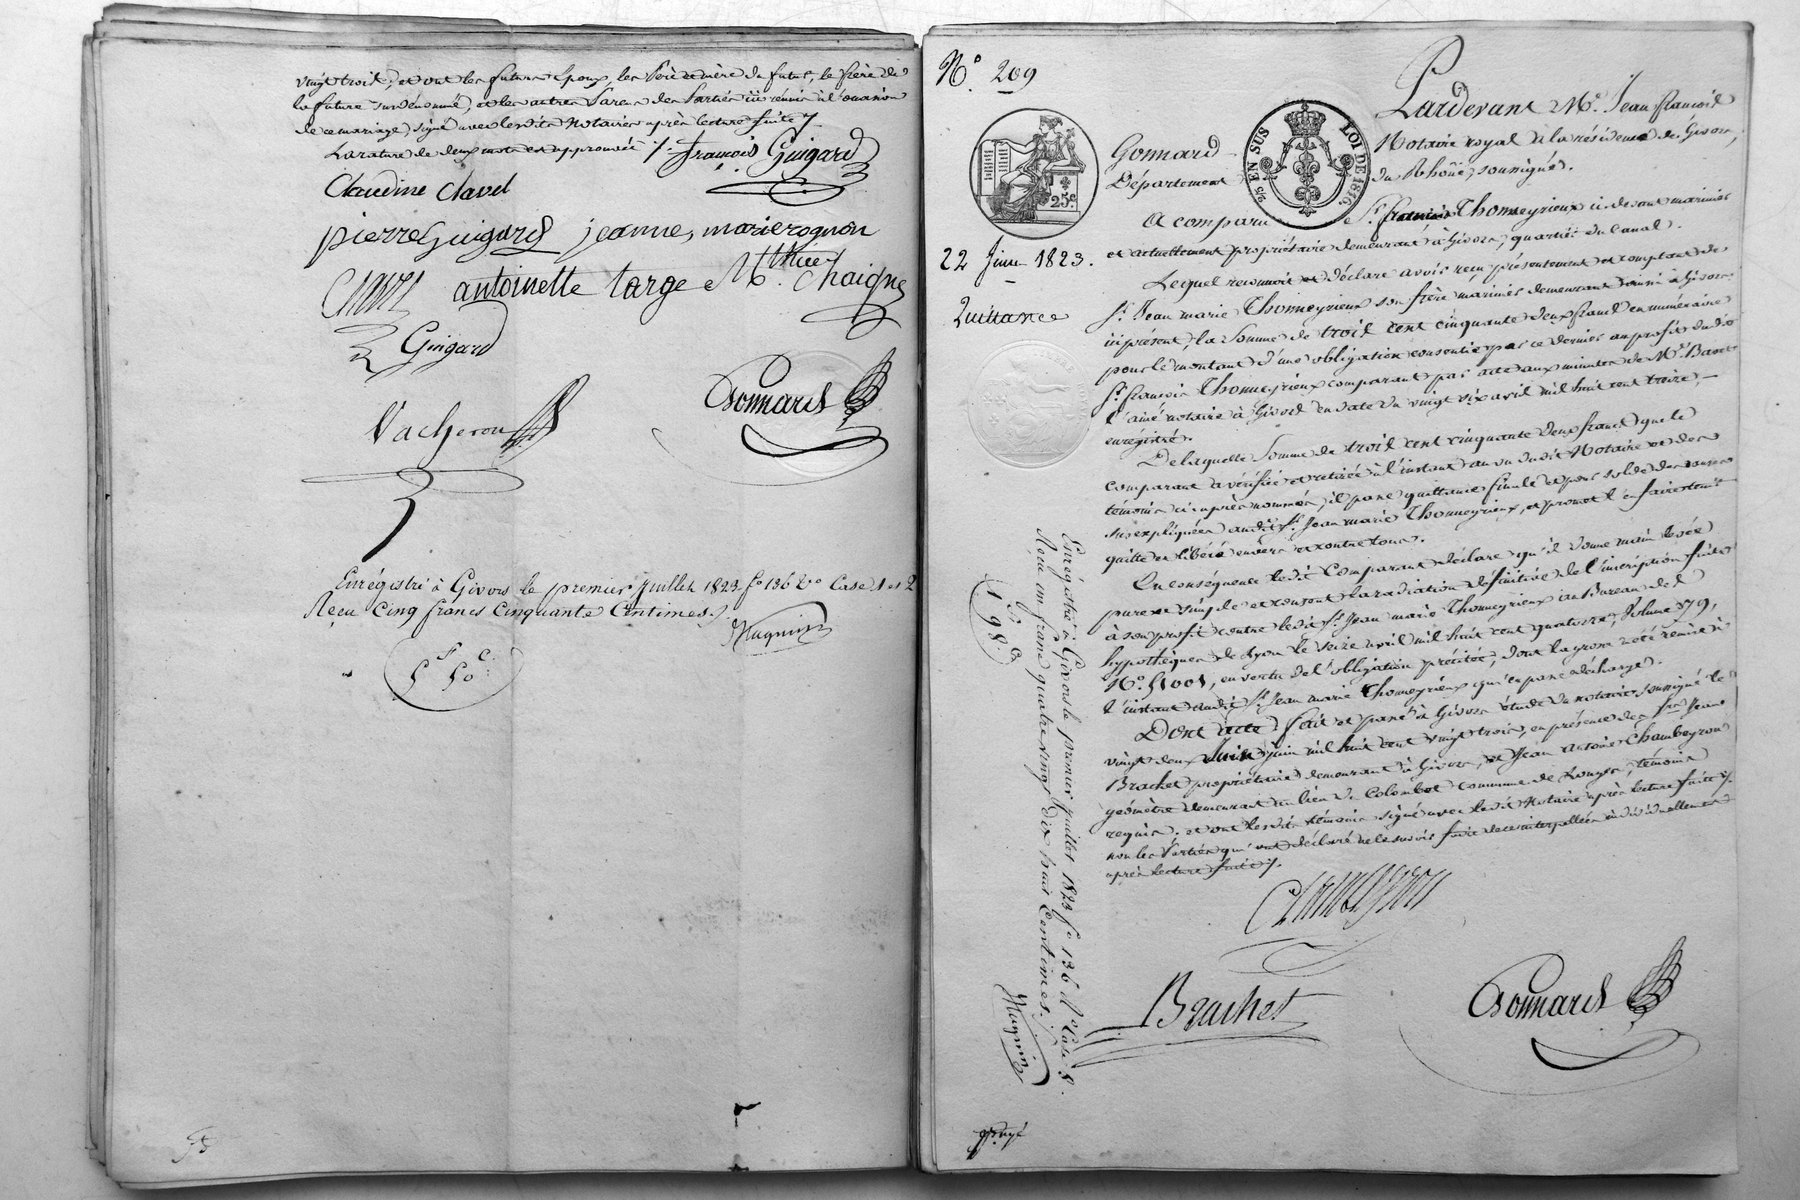 vingt trois, et ont les futurs Epoux, les Père et mère du futur, le frère de
la future susdénommé, et les autres Parens des Parties ici réunis à l'occasion
de ce mariage, signé avec lesdits Notaires après lecture faite /.
La rature de deux mots est approuvée /. françois Guigard
Claudine Clavel
pierre Guigard jeanne, marie rognon
antoinette targe Mthieu Chaigne
Guigard
Vacheron Gonnard
Enrégistré à Givors le premier juillet 1823 fo 136 Vo Case 1 et 2
Reçu Cinq francs Cinquante Centimes.
Magnin
5f 50c
No 209
Pardevant Me Jean francois
Gonnard Notaire royal à la résidence de Givors,
Département du Rhône, soussigné.
2/5 EN SUS LOI DE 1816.
25c
A comparu Sr françois Thomeyrieux ci-devant marinier
et actuellement propriétaire demeurant à Givors, quartier du Canal.
22 Juin 1823.
Quittance
Lequel reconnoit et déclare avoir reçu présentement et comptant de
Sr Jean marie Thomeyrieux son frère marinier demeurant aussi à Givors
ici présent, la Somme de trois cent cinquante deux francs en numéraire
pour le montant d'une obligation consentie par ce dernier au profit dudit
Sr françois Thomeyrieux comparant par acte aux minutes de Me
l'ainé notaire à Givors en date du vingt six avril mil huit cent treize,
enrégistré.
De laquelle Somme de trois cent cinquante deux francs que le
comparant a vérifiée et retirée à l'instant au vu dudit Notaire et des
témoins ci après nommés, il passe quittance finale et pour solde des causes
susexpliquées audit Sr Jean marie Thomeyrieux, et promet l'en faire tenir
quitte et libéré envers et contre tous.
En conséquence ledit Comparant déclare qu'il donne main levée
pure et simple et consent la radiation définitive de l'inscription faite
à son profit contre ledit Sr Jean marie Thomeyrieux au Bureau des
hypothèques de Lyon le seize avril mil huit cent quatorze, Volume 179,
No 51001, en vertu de l'obligation précitée, dont la grosse a été remise à
l'instant audit Sr Jean marie Thomeyrieux qui en passe décharge.
Dont acte, fait et passé à Givors étude du notaire soussigné le
vingt deux Juin juin mil huit cent vingt trois, en présence des Srs Jean
Brachet propriétaire demeurant à Givors, et Jean antoine Chambeyron
géomètre demeurant au lieu du Colombet commune de témoins
requis. et ont lesdits témoins signé avec ledit Notaire après lecture faite /.
non les Parties qui ont déclaré ne le savoir faire de ce interpellées individuellement
après lecture faite /.
Chambeyron
Brachet Gonnard
Enrégistré à Givors le premier juillet 1823 fo 136 Vo Case 8.
Reçu un franc quatre vingt dix huit Centimes.
Magnin
1f 98c